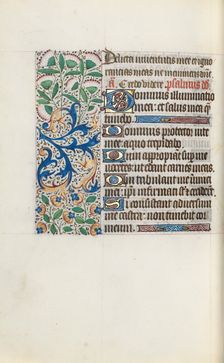 Delicta iuventutis mee et igno
rantias meas ne memineris dñe.
a. Credo videre. psalmus d̄d
Dominus illuminatio
mea: et salus mea q̄
timebo
Dominus protector vite
mee: a quo trepidabo
Dum appropiant sup me
nocentes: ut edant carnes meas.
Qui tribulant me inimici
mei: ipi infirmati st et cecider̄t
Si consistant adversum
me castra: non timebit cor
meum.